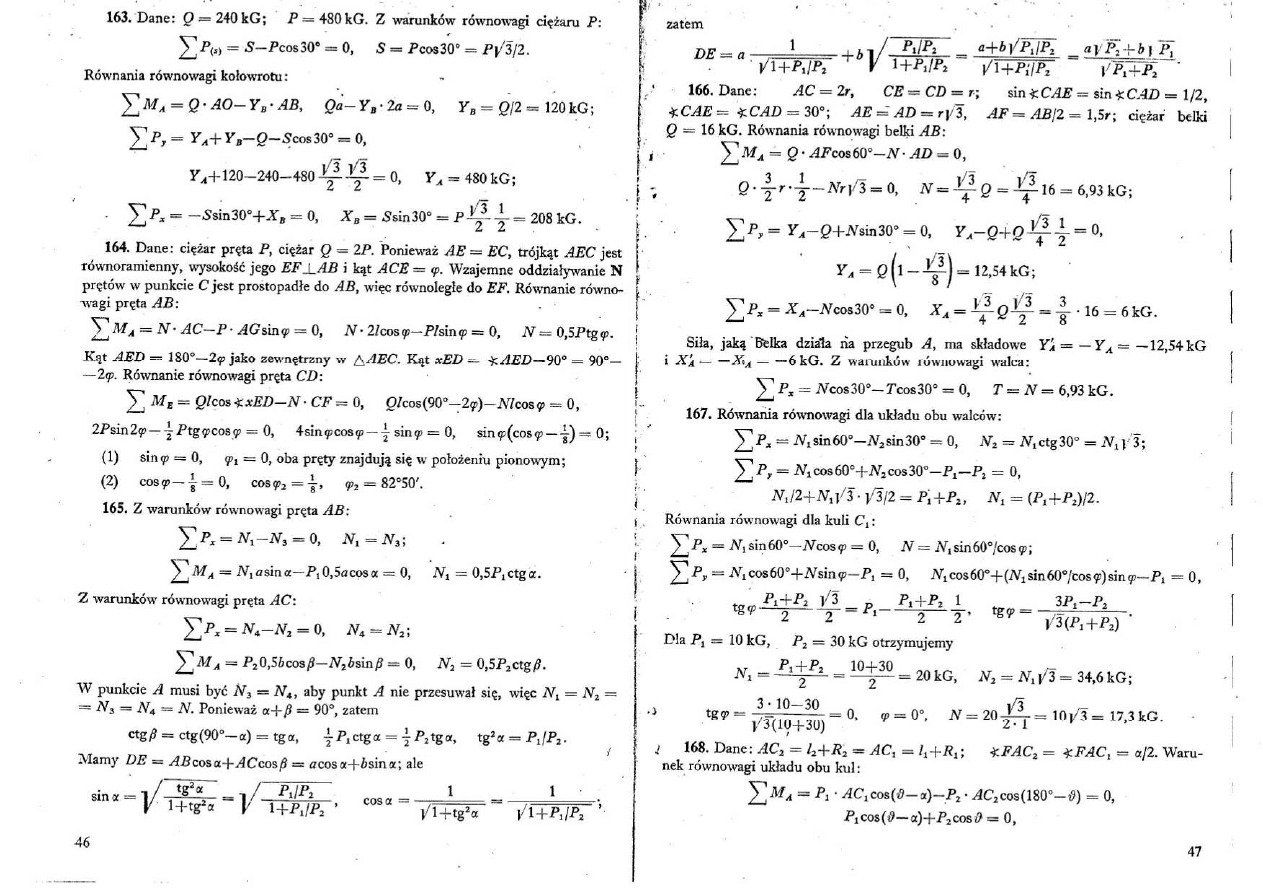 163. Dane: Q = 240 kG; P = 480 kG. Z warunków równowagi ciężaru P:
∑P₍ₛ₎ = S−Pcos30° = 0, S = Pcos30° = P√3/2.
Równania równowagi kołowrotu:
∑M_A = Q·AO−Y_B·AB, Qa−Y_B·2a = 0, Y_B = Q/2 = 120 kG;
∑P_y = Y_A+Y_B−Q−Scos30° = 0,
Y_A+120−240−480 √3/2 √3/2 = 0, Y_A = 480 kG;
∑P_x = −Ssin30°+X_B = 0, X_B = Ssin30° = P √3/2 1/2 = 208 kG.
164. Dane: ciężar pręta P, ciężar Q = 2P. Ponieważ AE = EC, trójkąt AEC jest
równoramienny, wysokość jego EF⊥AB i kąt ACE = φ. Wzajemne oddziaływanie N
prętów w punkcie C jest prostopadłe do AB, więc równoległe do EF. Równanie równo-
wagi pręta AB:
∑M_A = N·AC−P·AGsinφ = 0, N·2lcosφ−Plsinφ = 0, N = 0,5Ptgφ.
Kąt AED = 180°−2φ jako zewnętrzny w △AEC. Kąt xED = ∢AED−90° = 90°−
−2φ. Równanie równowagi pręta CD:
∑M_E = Qlcos∢xED−N·CF = 0, Qlcos(90°−2φ)−Nlcosφ = 0,
2Psin2φ−½Ptgφcosφ = 0, 4sinφcosφ−½sinφ = 0, sinφ(cosφ−⅛) = 0;
(1) sinφ = 0, φ₁ = 0, oba pręty znajdują się w położeniu pionowym;
(2) cosφ−⅛ = 0, cosφ₂ = ⅛, φ₂ = 82°50′.
165. Z warunków równowagi pręta AB:
∑P_x = N₁−N₃ = 0, N₁ = N₃;
∑M_A = N₁asinα−P₁0,5acosα = 0, N₁ = 0,5P₁ctgα.
Z warunków równowagi pręta AC:
∑P_x = N₄−N₂ = 0, N₄ = N₂;
∑M_A = P₂0,5bcosβ−N₂bsinβ = 0, N₂ = 0,5P₂ctgβ.
W punkcie A musi być N₃ = N₄, aby punkt A nie przesuwał się, więc N₁ = N₂ =
= N₃ = N₄ = N. Ponieważ α+β = 90°, zatem
ctgβ = ctg(90°−α) = tgα, ½P₁ctgα = ½P₂tgα, tg²α = P₁/P₂.
Mamy DE = ABcosα+ACcosβ = acosα+bsinα; ale
sinα = √(tg²α/(1+tg²α)) = √((P₁/P₂)/(1+P₁/P₂)), cosα = 1/√(1+tg²α) = 1/√(1+P₁/P₂);
46
zatem
DE = a·1/√(1+P₁/P₂) + b√((P₁/P₂)/(1+P₁/P₂)) = (a+b√(P₁/P₂))/√(1+P₁/P₂) = (a√P₂+b√P₁)/√(P₁+P₂).
166. Dane: AC = 2r, CE = CD = r; sin∢CAE = sin∢CAD = 1/2,
∢CAE = ∢CAD = 30°; AE = AD = r√3, AF = AB/2 = 1,5r; ciężar belki
Q = 16 kG. Równania równowagi belki AB:
∑M_A = Q·AFcos60°−N·AD = 0,
Q·3/2 r·1/2−Nr√3 = 0, N = √3/4 Q = √3/4 16 = 6,93 kG;
∑P_y = Y_A−Q+Nsin30° = 0, Y_A−Q+Q √3/4 1/2 = 0,
Y_A = Q(1−√3/8) = 12,54 kG;
∑P_x = X_A−Ncos30° = 0, X_A = √3/4 Q √3/2 = 3/8·16 = 6 kG.
Siła, jaką belka działa na przegub A, ma składowe Y′_A = −Y_A = −12,54 kG
i X′_A = −X_A = −6 kG. Z warunków równowagi walca:
∑P_x = Ncos30°−Tcos30° = 0, T = N = 6,93 kG.
167. Równania równowagi dla układu obu walców:
∑P_x = N₁sin60°−N₂sin30° = 0, N₂ = N₁ctg30° = N₁√3;
∑P_y = N₁cos60°+N₂cos30°−P₁−P₂ = 0,
N₁/2+N₁√3·√3/2 = P₁+P₂, N₁ = (P₁+P₂)/2.
Równania równowagi dla kuli C₁:
∑P_x = N₁sin60°−Ncosφ = 0, N = N₁sin60°/cosφ;
∑P_y = N₁cos60°+Nsinφ−P₁ = 0, N₁cos60°+(N₁sin60°/cosφ)sinφ−P₁ = 0,
tgφ (P₁+P₂)/2 √3/2 = P₁−(P₁+P₂)/2 1/2, tgφ = (3P₁−P₂)/(√3(P₁+P₂)).
Dla P₁ = 10 kG, P₂ = 30 kG otrzymujemy
N₁ = (P₁+P₂)/2 = (10+30)/2 = 20 kG, N₂ = N₁√3 = 34,6 kG;
tgφ = (3·10−30)/(√3(10+30)) = 0, φ = 0°, N = 20 √3/(2·1) = 10√3 = 17,3 kG.
168. Dane: AC₂ = l₂+R₂ = AC₁ = l₁+R₁; ∢FAC₂ = ∢FAC₁ = α/2. Waru-
nek równowagi układu obu kul:
∑M_A = P₁·AC₁cos(ϑ−α)−P₂·AC₂cos(180°−ϑ) = 0,
P₁cos(ϑ−α)+P₂cosϑ = 0,
47